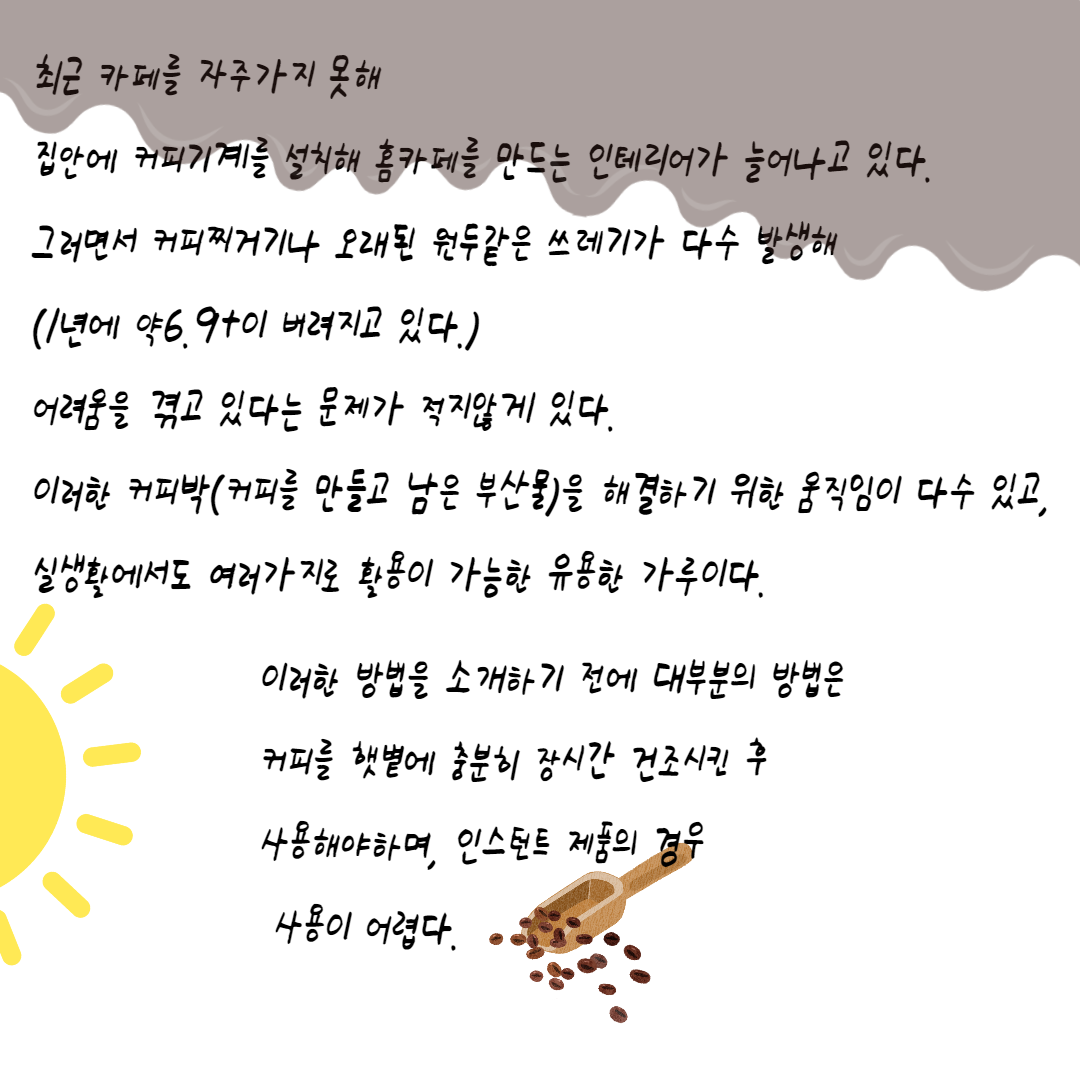 최근 카페를 자주가지 못해
집안에 커피기계를 설치해 홈카페를 만드는 인테리어가 늘어나고 있다.
그러면서 커피찌거기나 오래된 원두같은 쓰레기가 다수 발생해
(1년에 약6.9t이 버려지고 있다.)
어려움을 겪고 있다는 문제가 적지않게 있다.
이러한 커피박(커피를 만들고 남은 부산물)을 해결하기 위한 움직임이 다수 있고,
실생활에서도 여러가지로 활용이 가능한 유용한 가루이다.
이러한 방법을 소개하기 전에 대부분의 방법은
커피를 햇볕에 충분히 장시간 건조시킨 후
사용해야하며, 인스턴트 제품의 경우
사용이 어렵다.